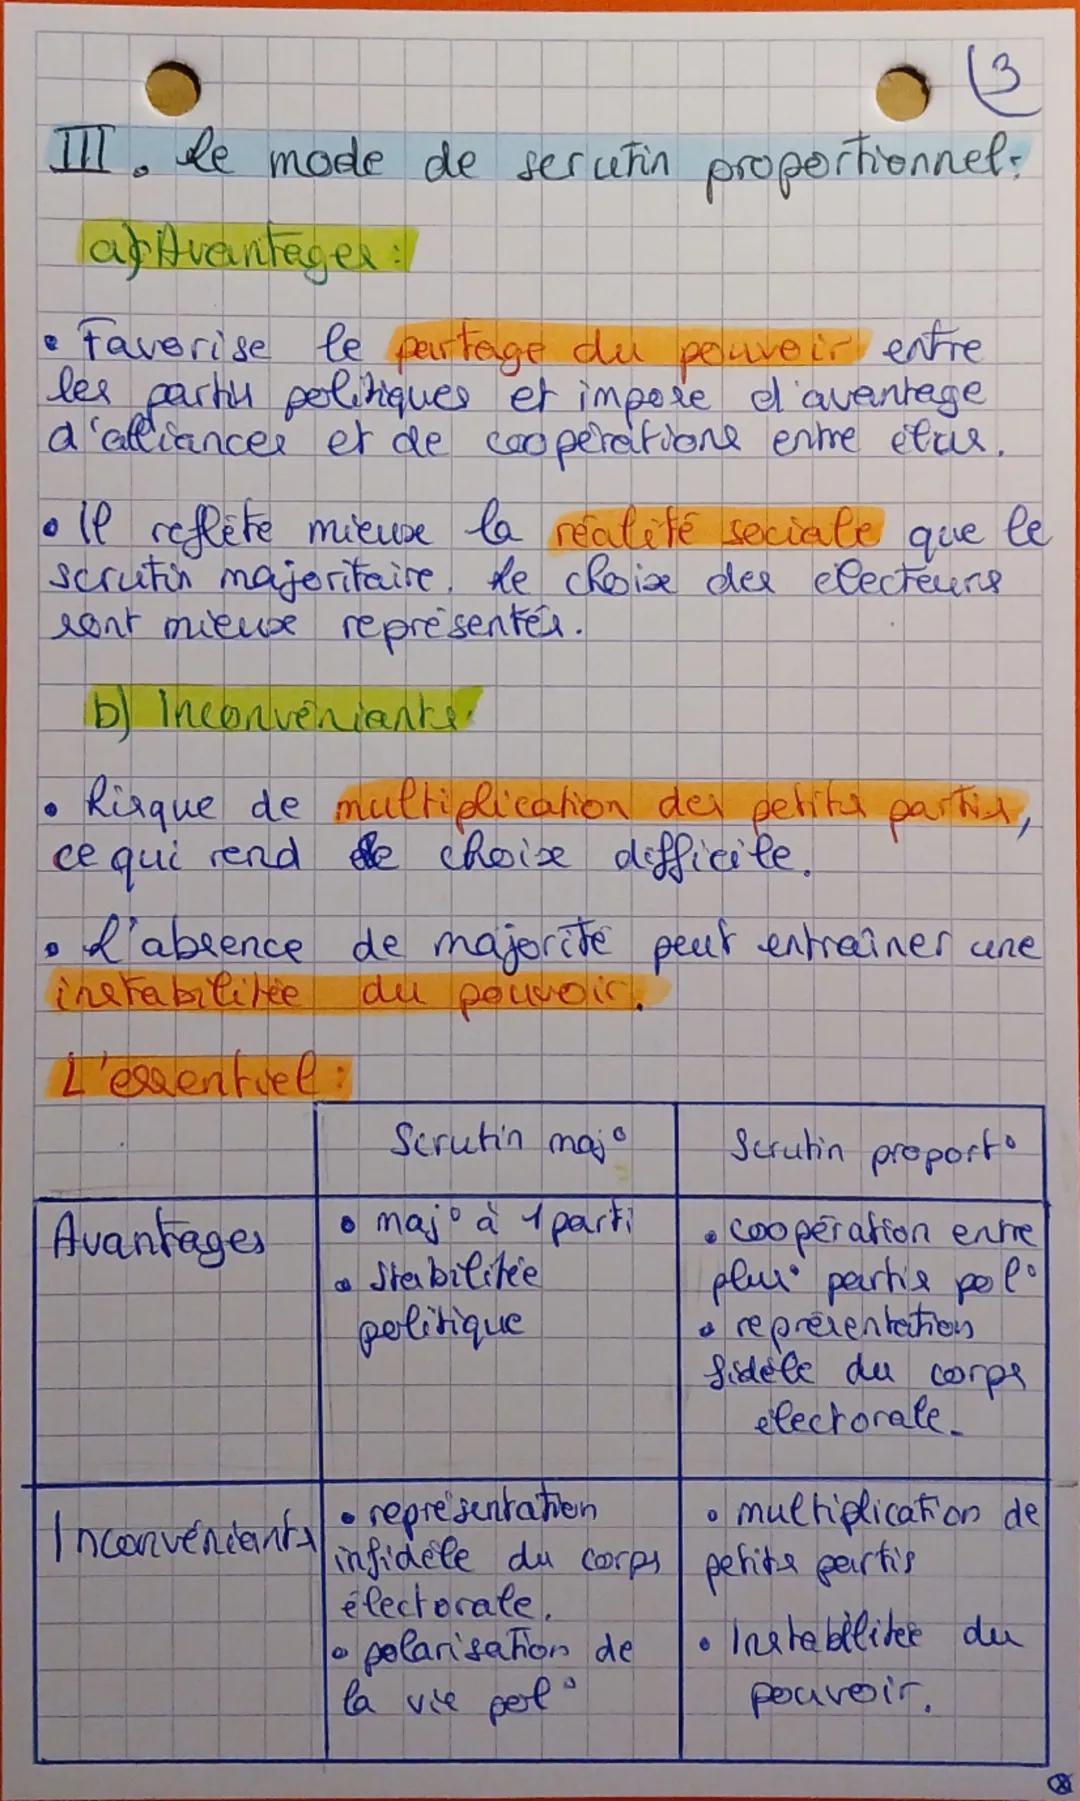 3
III. Le mode de scrutin proportionnel:
a) Avantages:
• Favorise le partage du pouvoir entre
les partis politiques et impose d'avantage
d'alliances et de coopérations entre élus.
• Il reflète mieux la réalité sociale que le
scrutin majoritaire. Le choix des électeurs
sont mieux représentés.
b) Inconvéniants:
• Risque de multiplication des petits partis,
ce qui rend le choix difficile.
• L'absence de majorité peut entraîner une
instabilitée du pouvoir.
L'essentiel:
Scrutin maj°
Scrutin proport°
Avantages
• maj° à 1 parti
• Stabilitée
politique
• coopération entre
plus° partis pol°
• représentation
fidèle du corps
électorale.
Inconvéniants
• représentation
infidèle du corps
électorale.
• polarisation de
la vie pol°
• multiplication de
petits partis
• Instabilitée du
pouvoir.